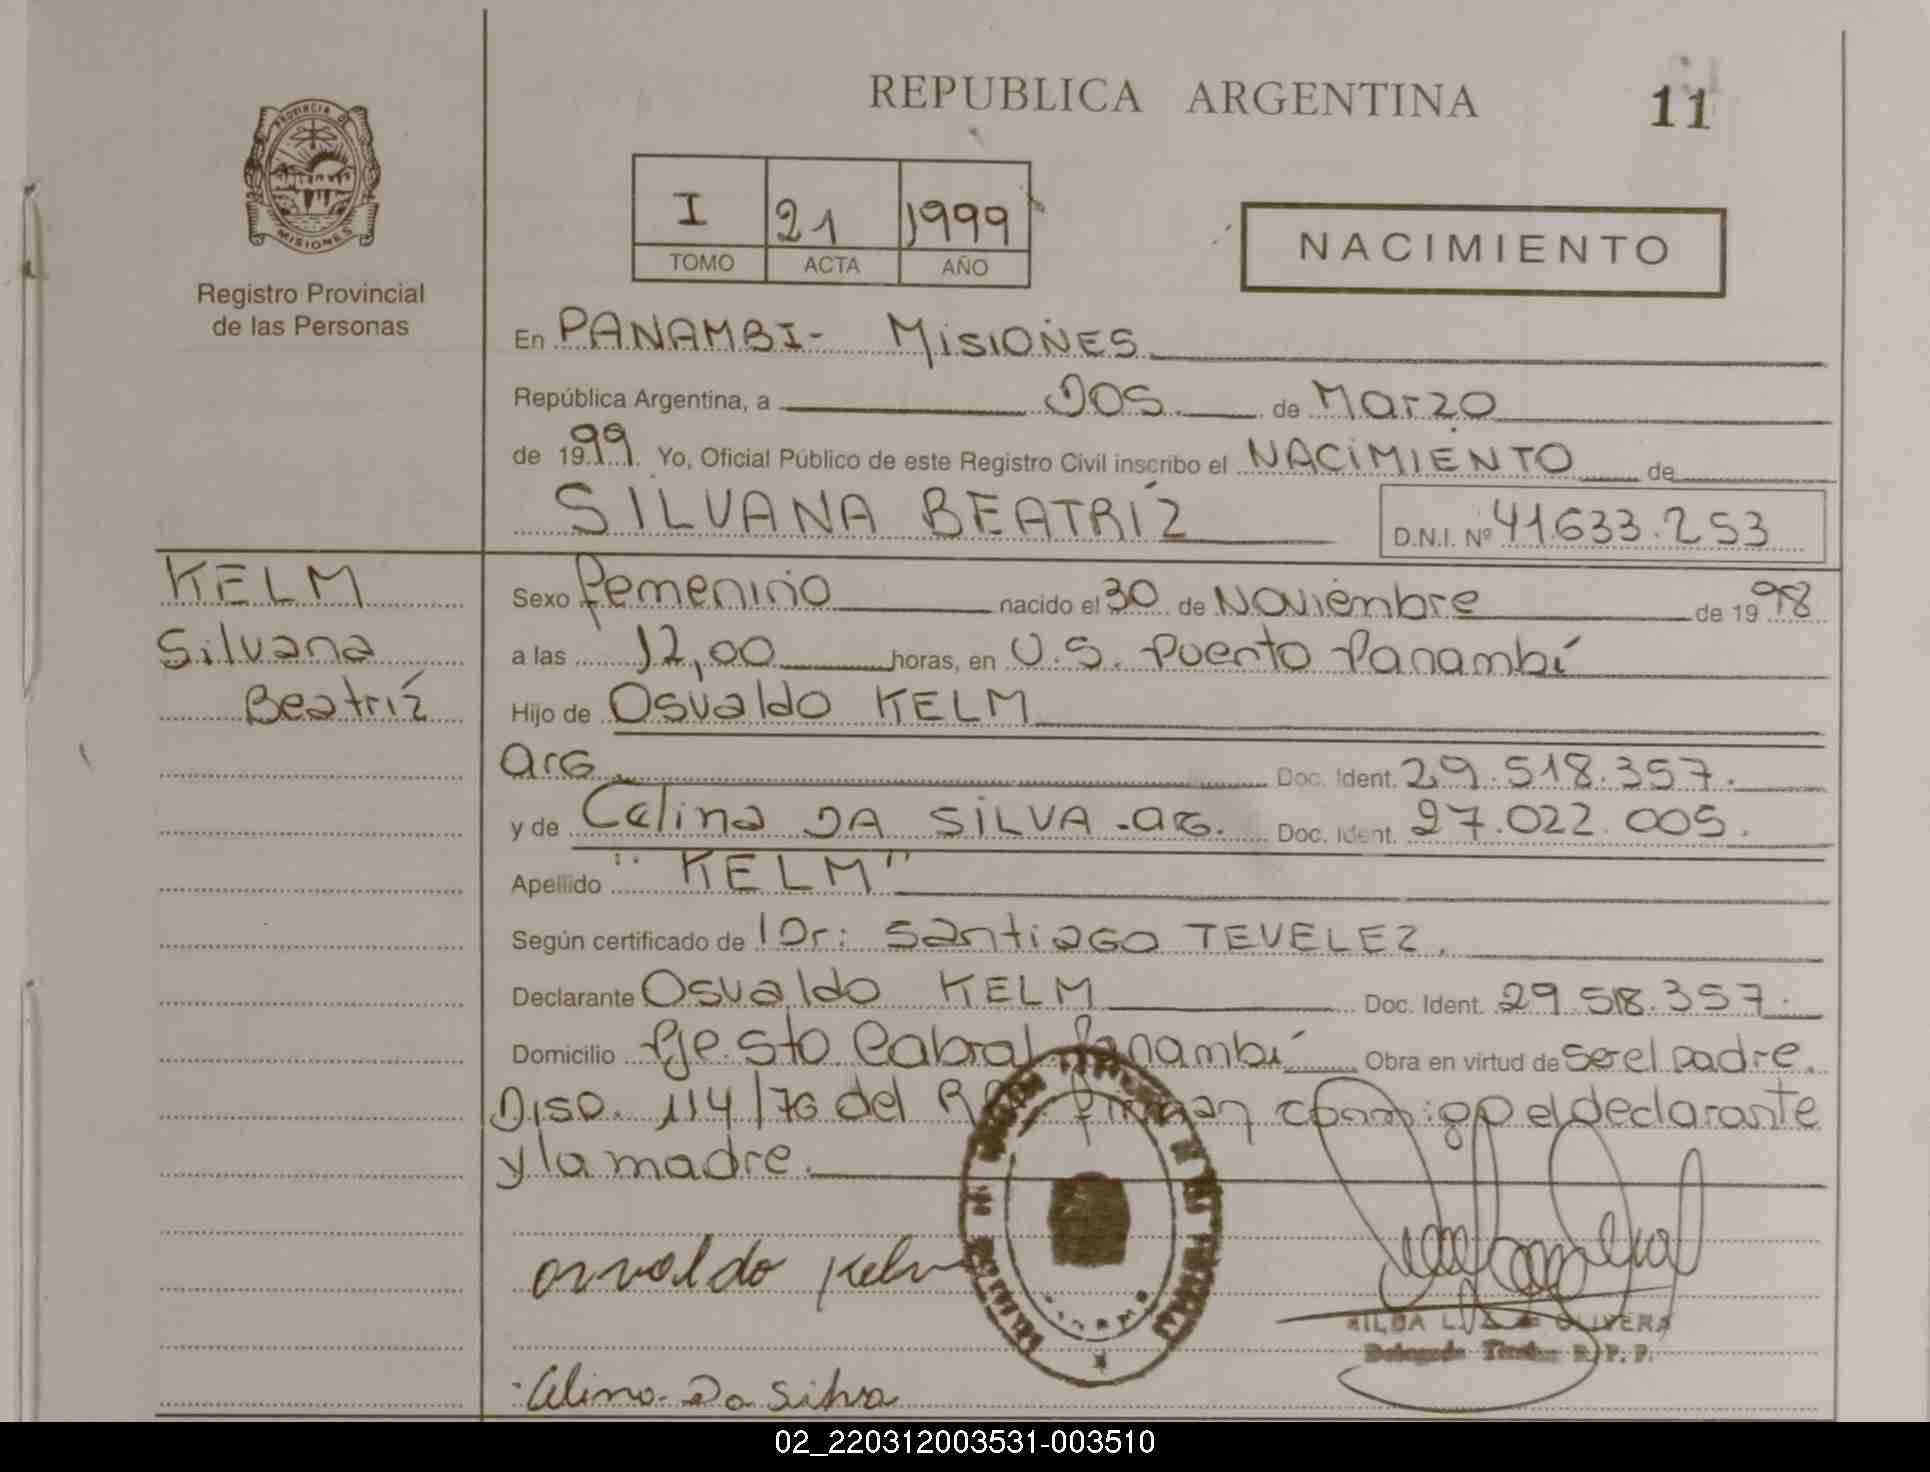 REPUBLICA ARGENTINA
11
PROVINCIA DE
MISIONES
Registro Provincial
de las Personas
I 21 1999
TOMO ACTA AÑO
NACIMIENTO
En PANAMBI- MISIONES
República Argentina, a DOS de Marzo
de 1999. Yo, Oficial Público de este Registro Civil inscribo el NACIMIENTO de
SILVANA BEATRÍZ
D.N.I. Nº 41.633.253
KELM
Silvana
Beatríz
Sexo femenino nacido el 30 de Noviembre de 1998
a las 12,00 horas, en U.S. Puerto Panambí
Hijo de Osvaldo KELM
arg Doc. Ident. 29.518.357.
y de Celina DA SILVA - arg. Doc. Ident. 27.022.005.
Apellido "KELM"
Según certificado de Dr: Santiago TEVELEZ.
Declarante Osvaldo KELM Doc. Ident. 29.518.357.
Domicilio Pje. Sto Cabral Panambí Obra en virtud de ser el padre.
Disp. 114/76 del firman conmigo el declarante
y la madre.
osvaldo Kelm
OLIVERA
R. P. P.
Celina Da Silva
02_220312003531-003510